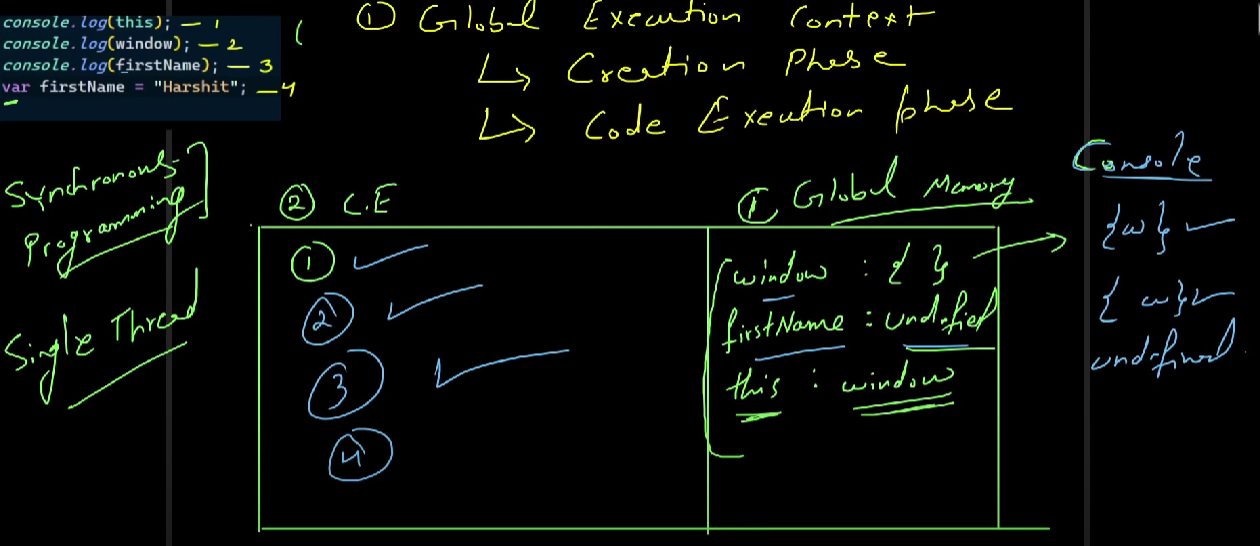 console.log(this); — 1
console.log(window); — 2
console.log(firstName); — 3
var firstName = "Harshit"; — 4
① Global Execution Context
↳ Creation Phase
↳ Code Execution phase
Synchronous
Programming
Single Thread
② C.E
①
②
③
④
① Global Memory
window : { }
firstName : undified
this : window
Console
{w}
{w}
undefined